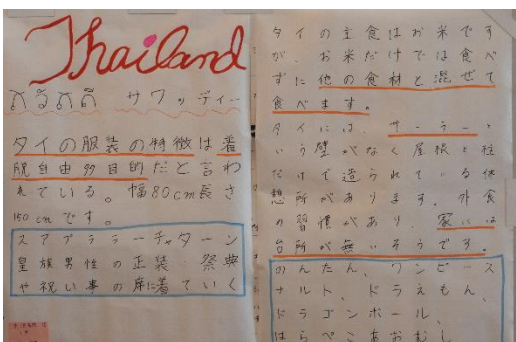 Thailand
サワッディー
タイの服装の特徴は着
脱自由が目的だと言わ
れている。幅80cm長さ
150cmです。
スアプララーチャターン
皇族男性の正装 祭典
や祝い事の席に着ていく
タイの主食はお米です
が、お米だけでは食べ
ずに他の食材と混ぜて
食べます。
タイには、サーラーと
いう壁がなく屋根と柱
だけで造られている休
憩所があります。外食
の習慣があり、家には
台所が無いそうです。
のんたん、ワンピース
ナルト、ドラえもん、
ドラゴンボール、
はらぺこあおむし